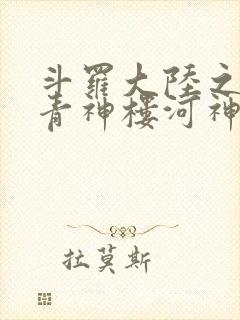 斗羅大陸之
青神樓河神
拉莫斯